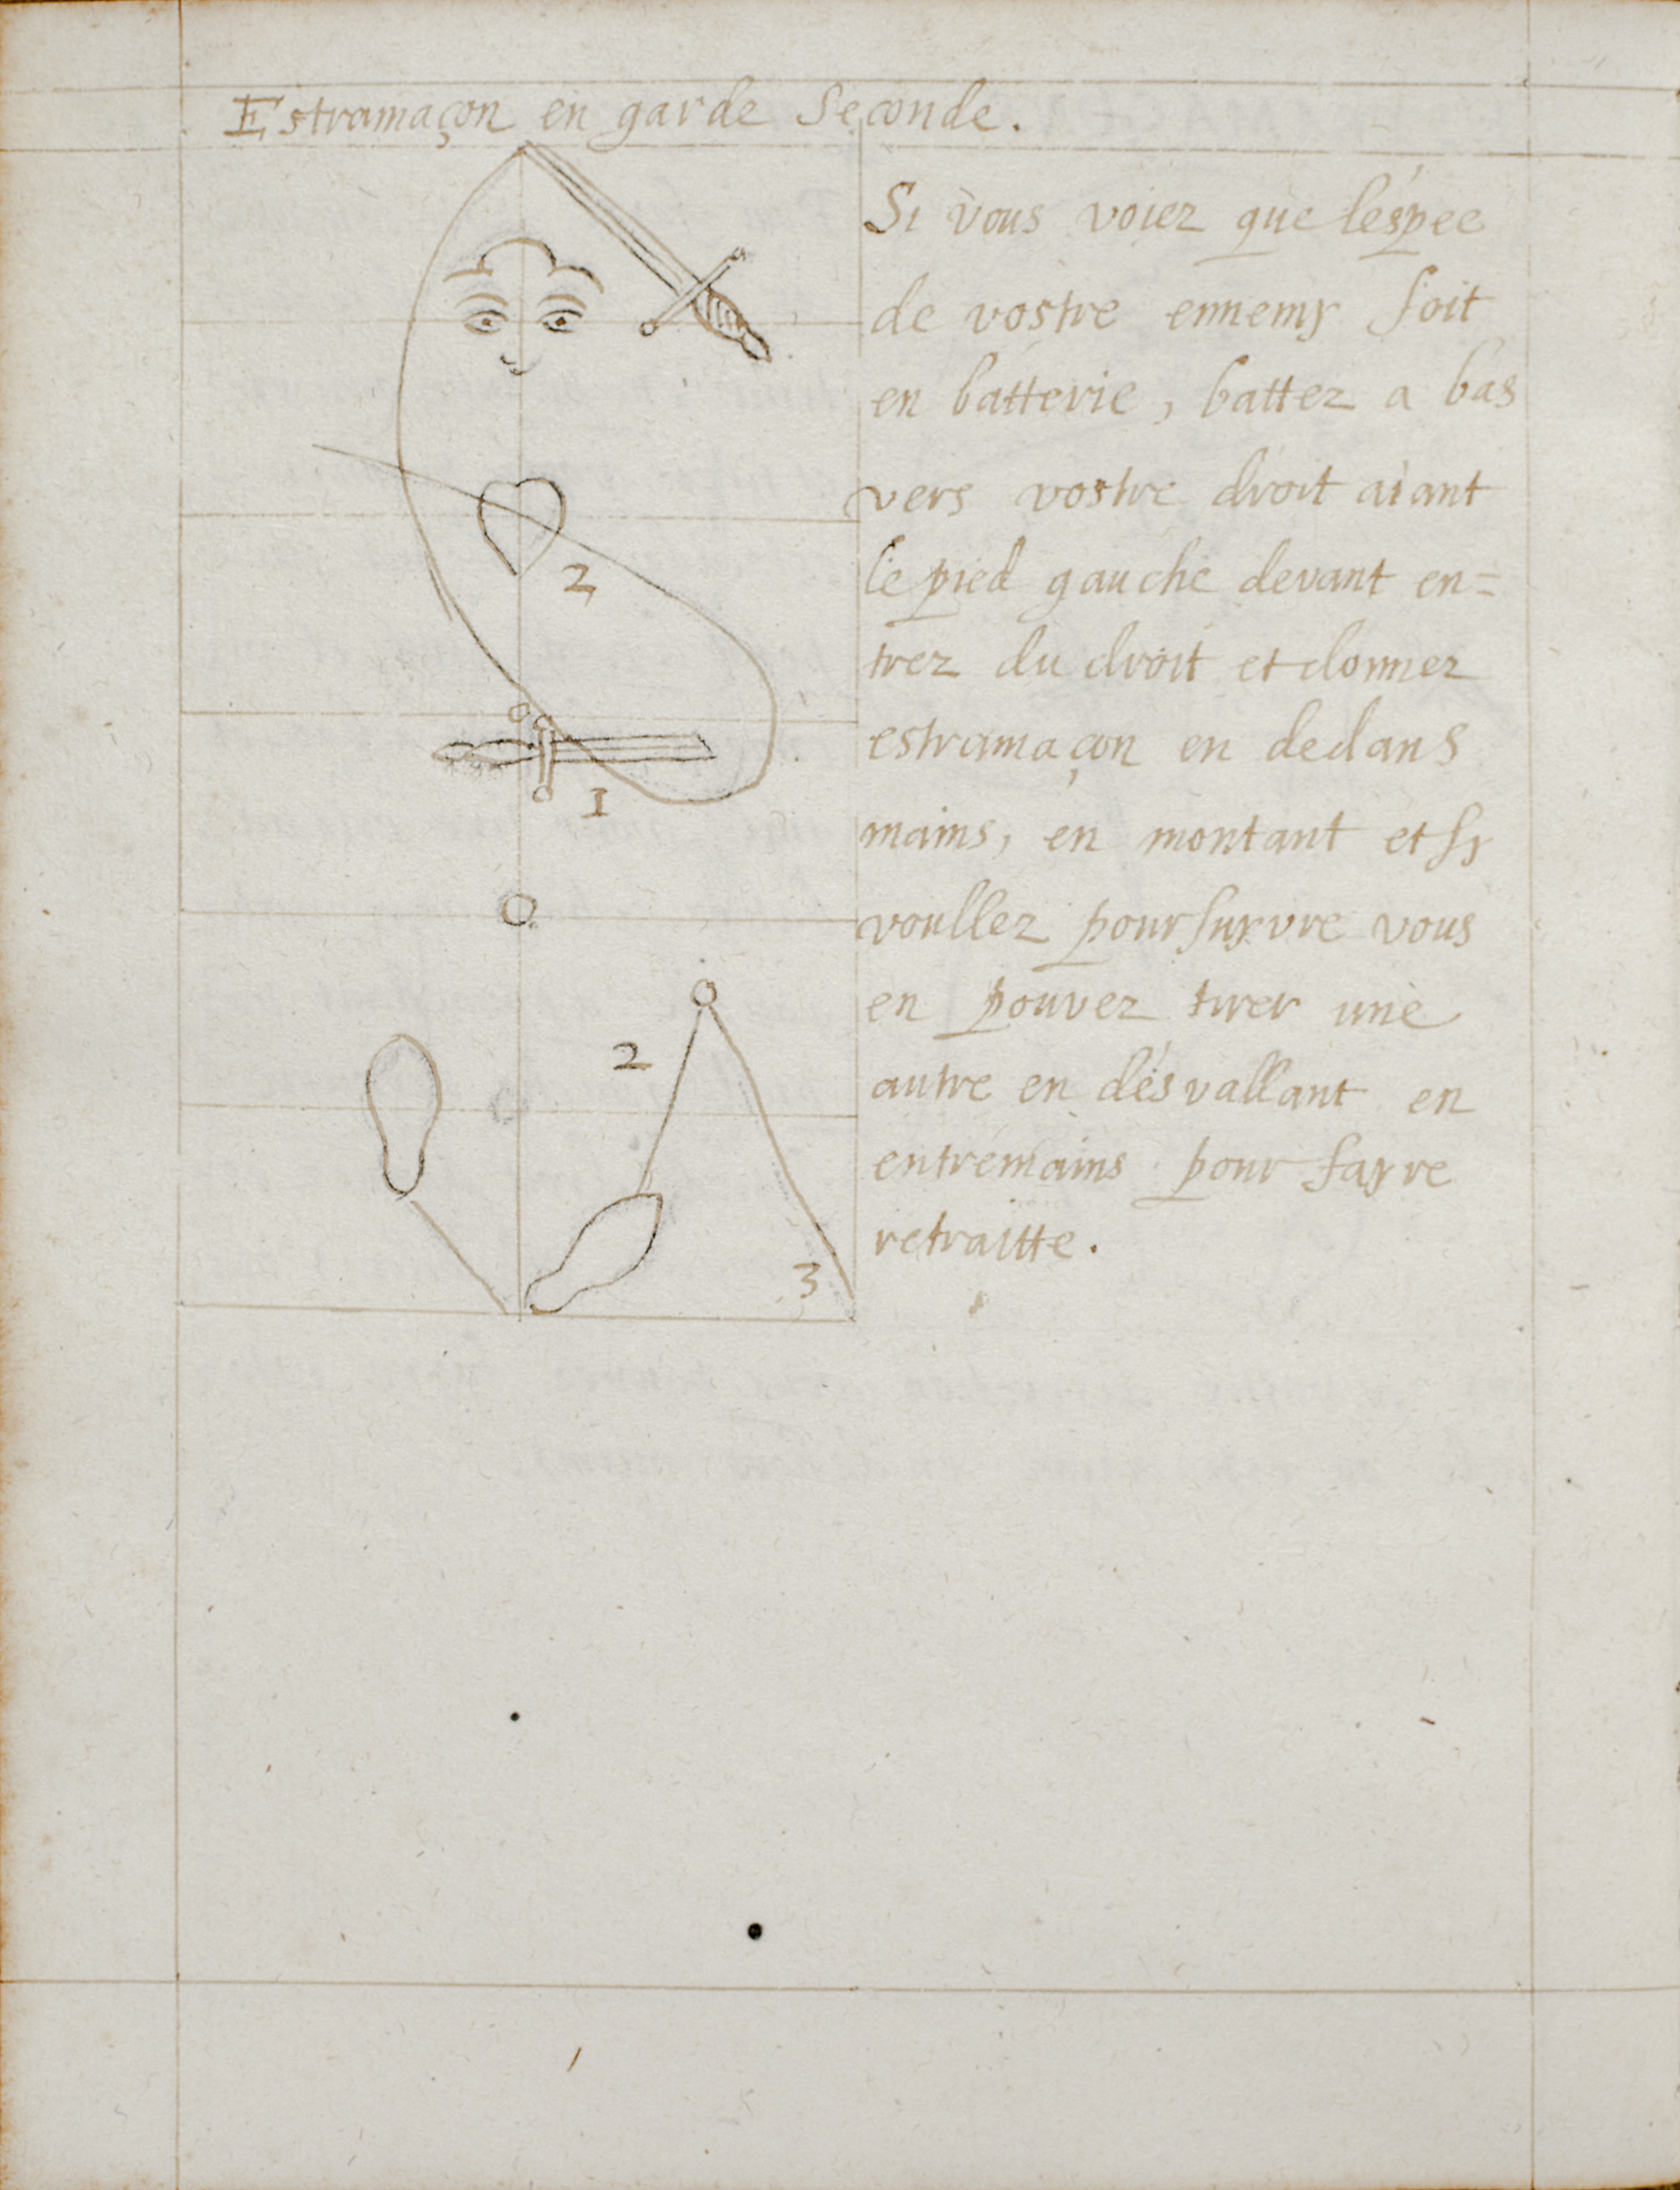 Estramaçon en garde Seconde.
Si vous voiez que léspee
de vostre ennemy soit
en batterie, battez a bas
vers vostre droit aiant
le pied gauche devant en=
trez du droit et donnez
estramaçon en dedans
mains, en montant et sy
voullez poursuyvre vous
en pouvez tirer une
autre en désvallant en
entremains pour fayre
retraitte.
2
1
2
3